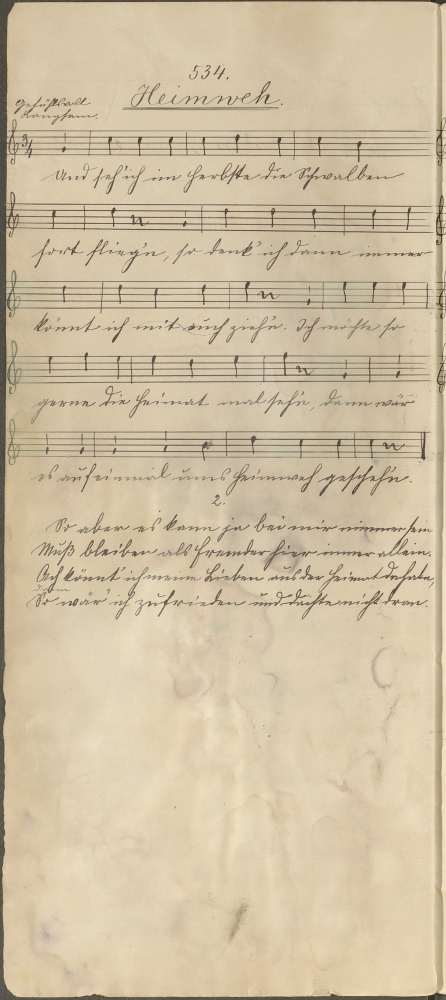 534.
Heimweh.
Gefühlvoll
Langsam.
3/4
Und seh' ich im Herbste die Schwalben
fort flieg'n, so denk' ich dann immer
könnt ich mit euch zieh'n. Ich möchte so
gerne die Heimat mal seh'n, dann wär
es auf einmal ums Heimweh gescheh'n.
2.
So aber es kann ja bei mir nimmer sein
Muß bleiben als Fremder hier immer allein.
Ach könnt' ich meine Lieben aus der Heimat da hab'n,
So wär' ich zufrieden und dächte nicht dran.